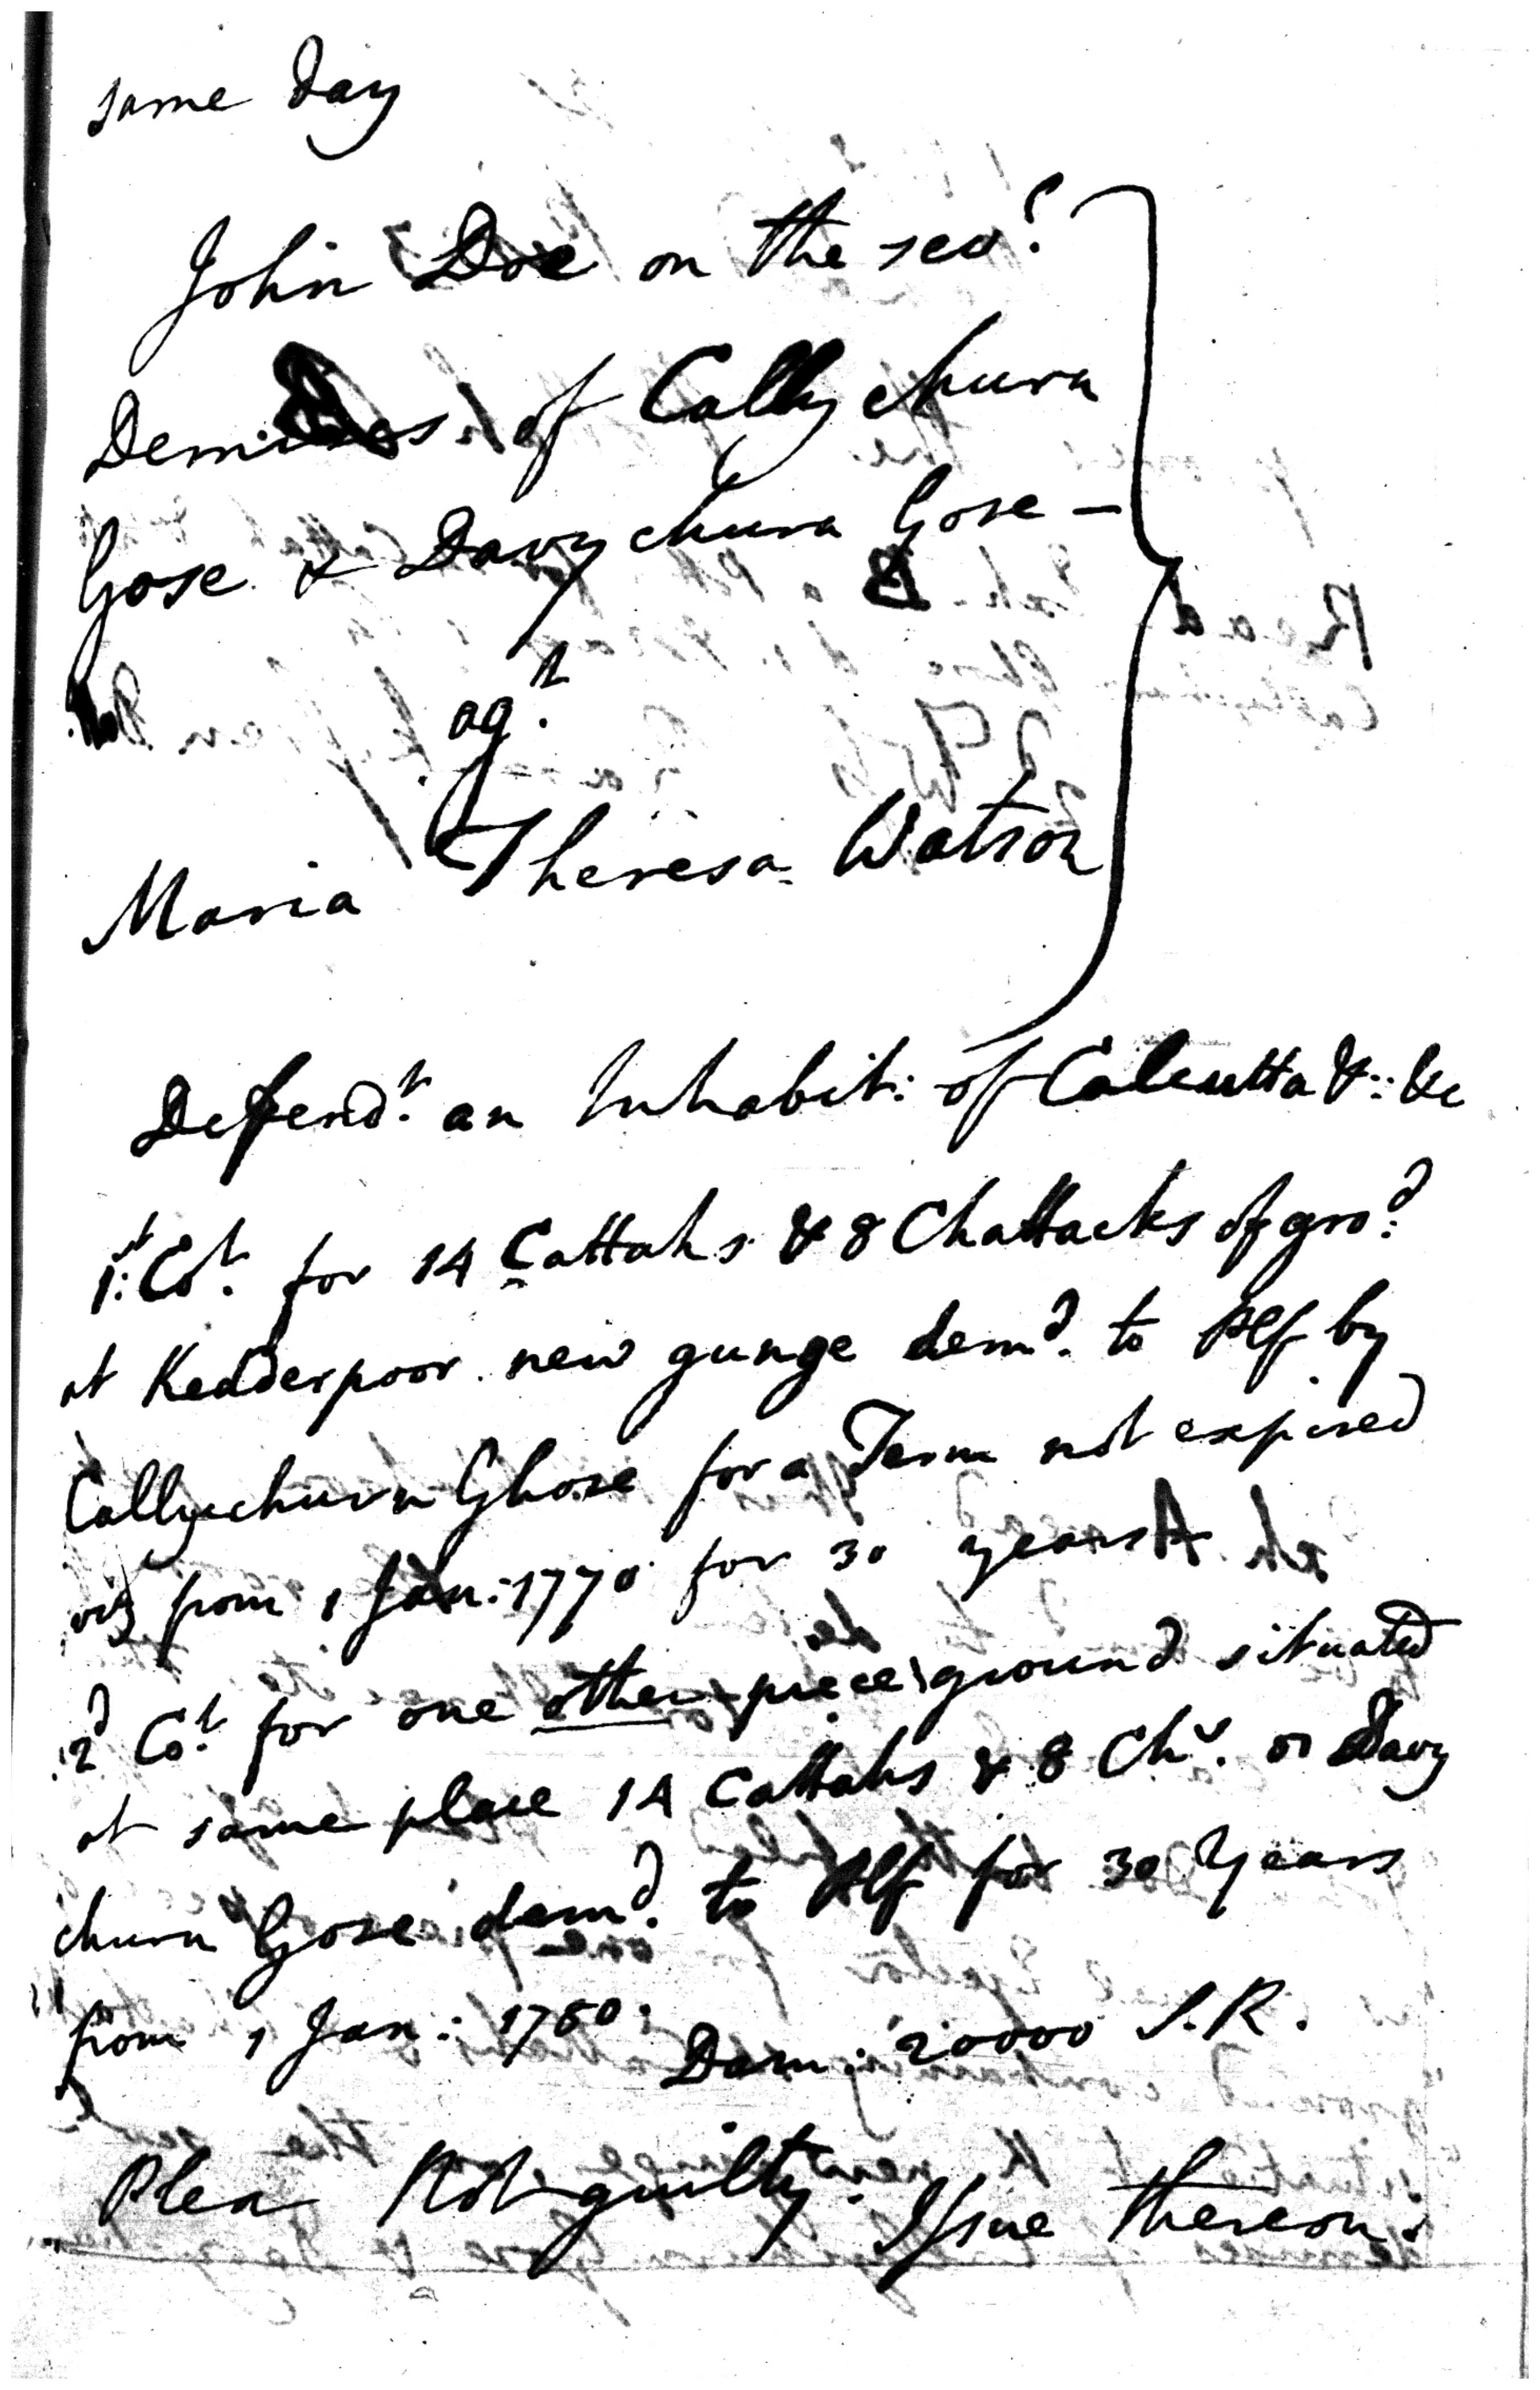 same day
John Doe on the sev.l
Demises of Cally churn
Gose & Davy churn Gose —
ag.t
Maria Theresa Watson
Defend.t an Inhabit: of Calcutta &: &c
1.st Co.t for 14 Cattahs & 8 Chattacks of gro.d
at Kedderpoor new gunge dem.d to Plf by
Cally churn Ghose for a Term not expired
viz from 1 Jan: 1770 for 30 years
2.d Co.t for one other piece ground situated
at same place 14 Cattahs & 8 Ch.s or Davy
churn Gose dem.d to Plf for 30 Years
from 1 Jan: 1780. Dam: 20000 S.R.
Plea Not guilty. Issue thereon.